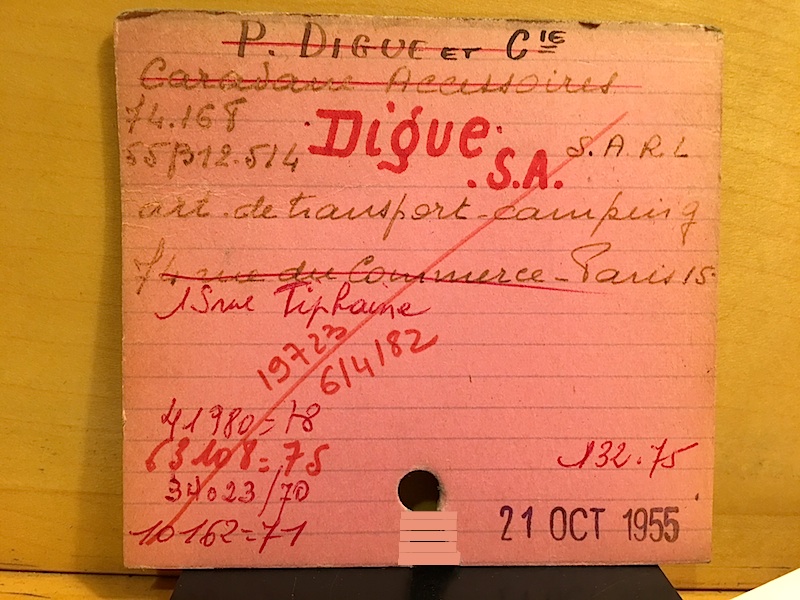 P. DIGUE ET CIE
Caravane Accessoires
74.168
Digue S.A.
S.A.R.L
55B12.514
art. de transport - camping
74 rue du Commerce - Paris 15
15 rue Tiphaine
19723
6/4/82
41980=78
63108=75
132.75
34023/70
10162=71
21 OCT 1955